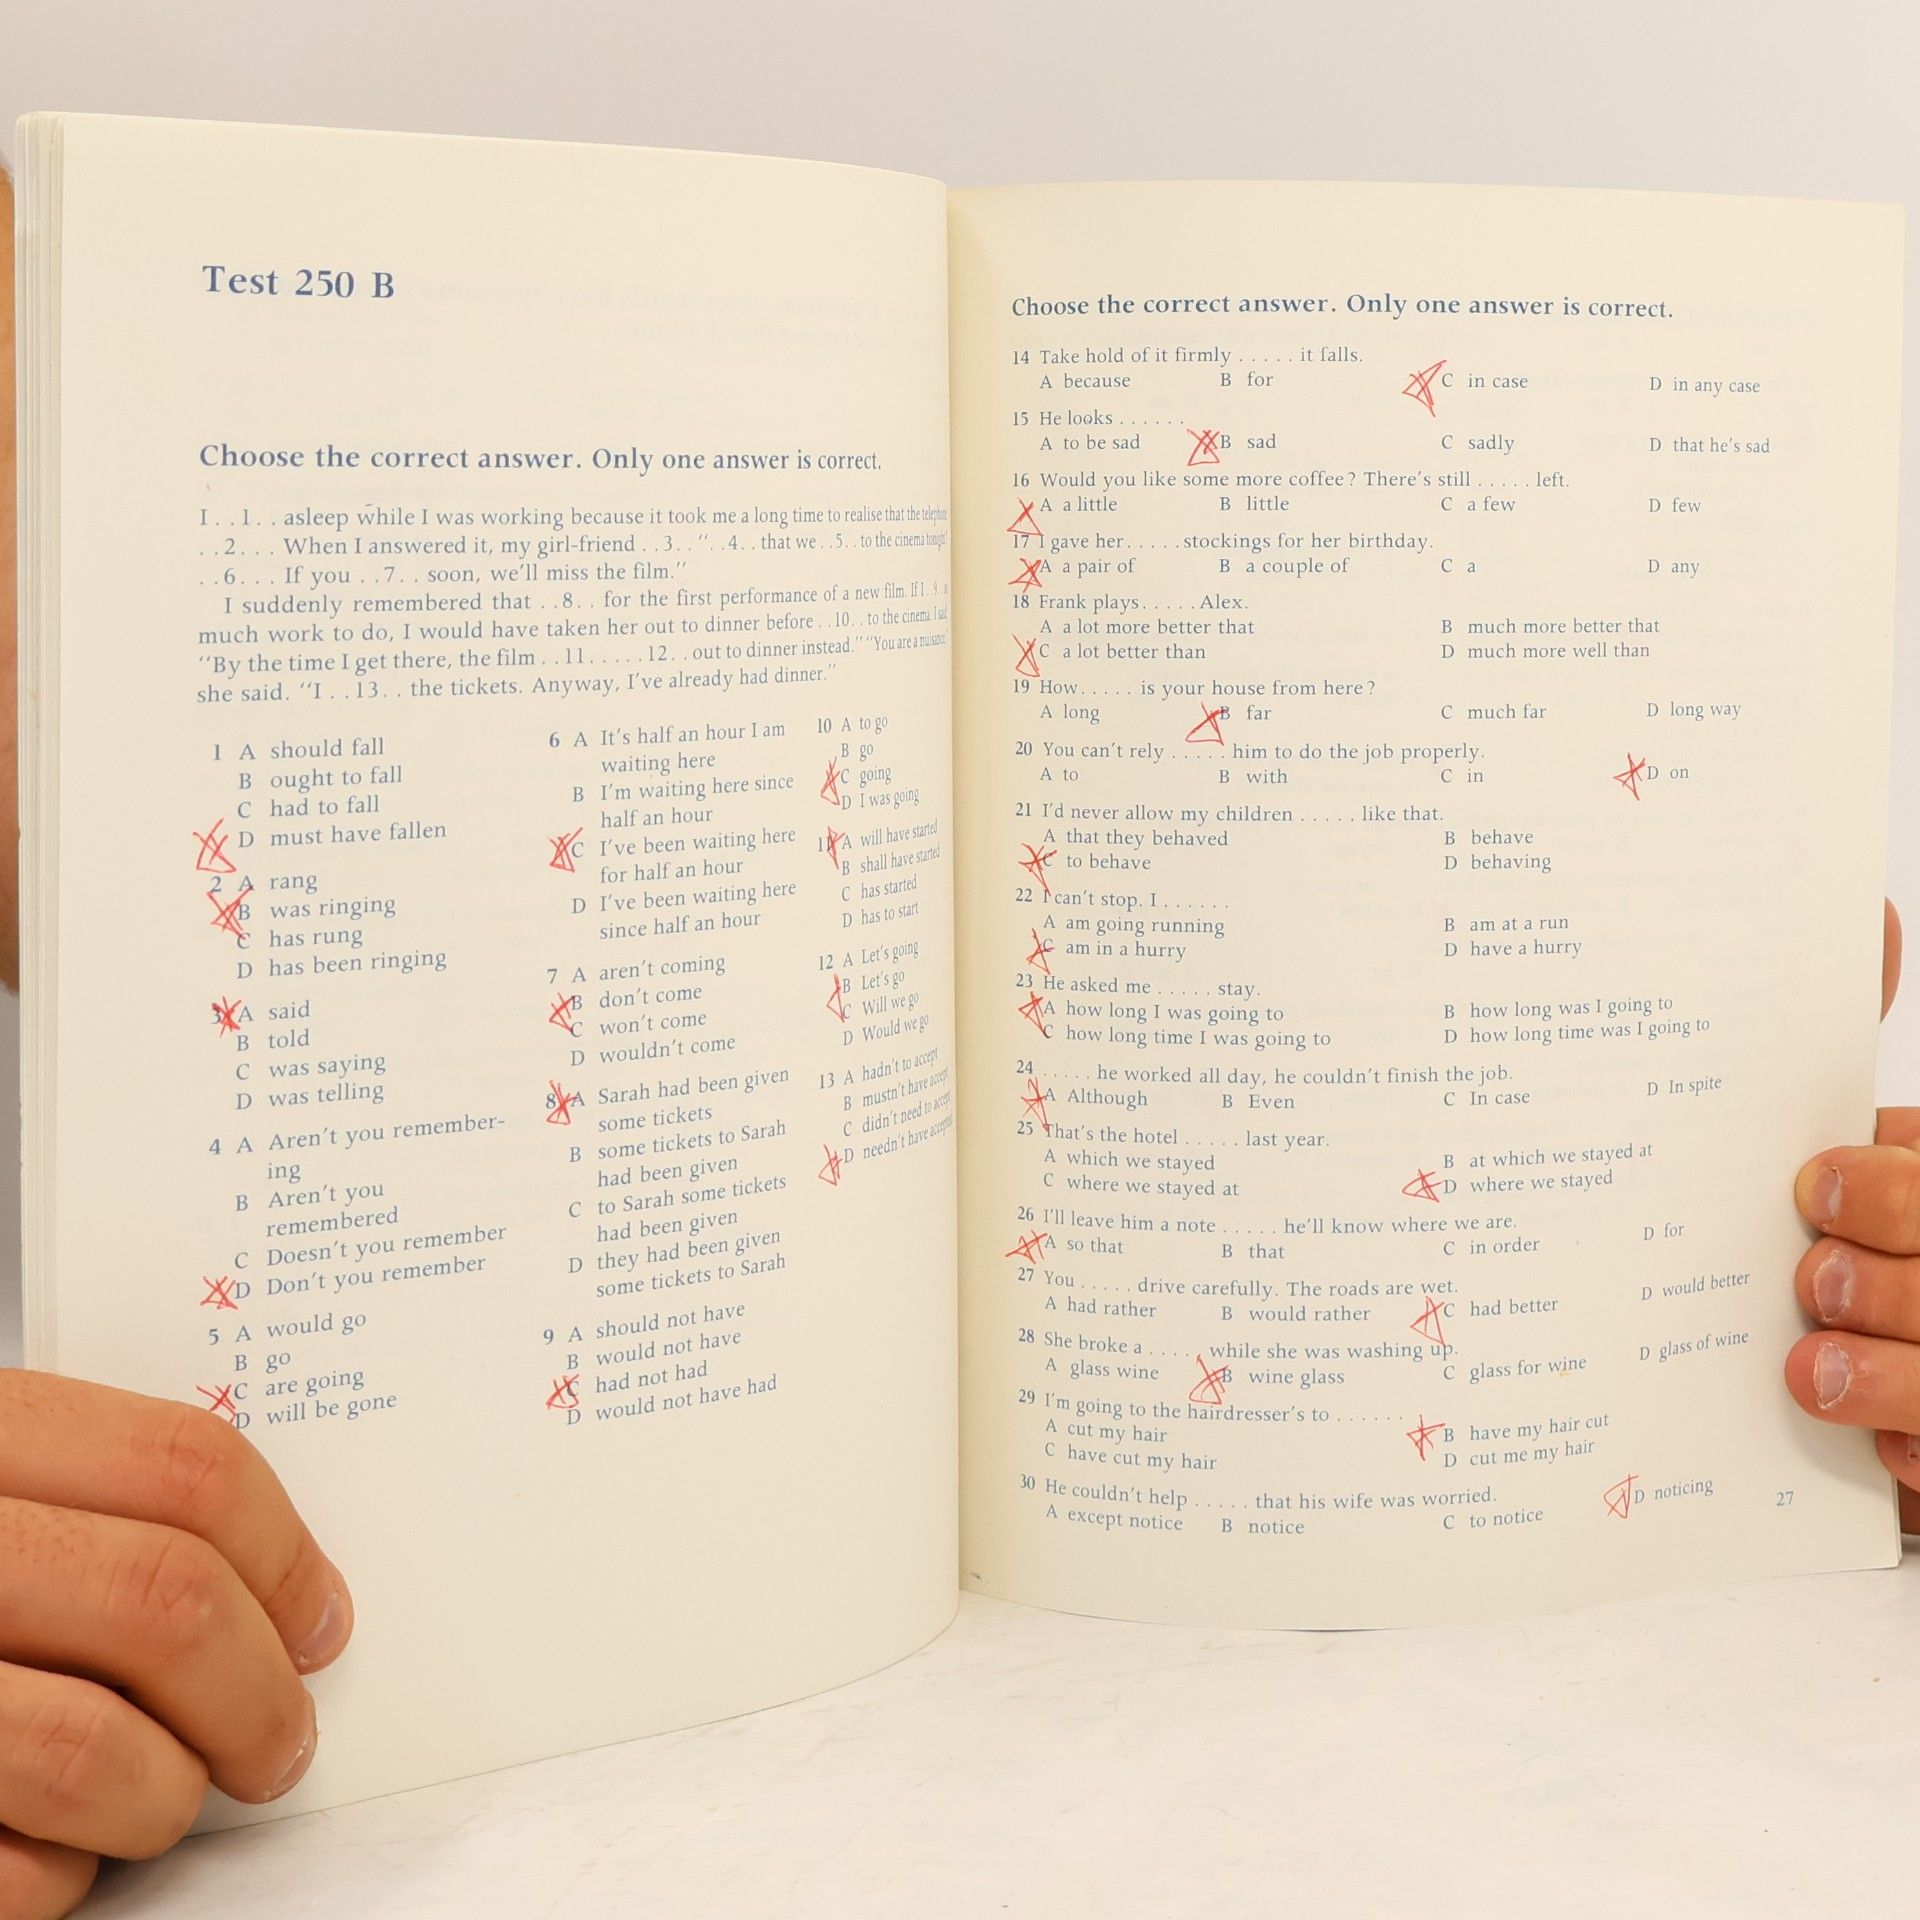 Test 250 B
Choose the correct answer. Only one answer is correct.
I . . 1 . . asleep while I was working because it took me a long time to realise that the telephone
. . 2 . . . When I answered it, my girl-friend . . 3 . . “ . . 4 . . that we . . 5 . . to the cinema tonight?
. . 6 . . . If you . . 7 . . soon, we'll miss the film.”
I suddenly remembered that . . 8 . . for the first performance of a new film. If I . . 9 . . so
much work to do, I would have taken her out to dinner before . . 10 . . to the cinema. I said
“By the time I get there, the film . . 11 . . . . . 12 . . out to dinner instead.” “You are a nuisance,”
she said. “I . . 13 . . the tickets. Anyway, I've already had dinner.”
1 A should fall
B ought to fall
C had to fall
D must have fallen
2 A rang
B was ringing
C has rung
D has been ringing
3 A said
B told
C was saying
D was telling
4 A Aren't you remember-
ing
B Aren't you
remembered
C Doesn't you remember
D Don't you remember
5 A would go
B go
C are going
D will be gone
6 A It's half an hour I am
waiting here
B I'm waiting here since
half an hour
C I've been waiting here
for half an hour
D I've been waiting here
since half an hour
7 A aren't coming
B don't come
C won't come
D wouldn't come
8 A Sarah had been given
some tickets
B some tickets to Sarah
had been given
C to Sarah some tickets
had been given
D they had been given
some tickets to Sarah
9 A should not have
B would not have
C had not had
D would not have had
10 A to go
B go
C going
D I was going
11 A will have started
B shall have started
C has started
D has to start
12 A Let's going
B Let's go
C Will we go
D Would we go
13 A hadn't to accept
B mustn't have accept
C didn't need to accept
D needn't have accepted
Choose the correct answer. Only one answer is correct.
14 Take hold of it firmly . . . . . it falls.
A because B for C in case D in any case
15 He looks . . . . . .
A to be sad B sad C sadly D that he's sad
16 Would you like some more coffee? There's still . . . . . left.
A a little B little C a few D few
17 I gave her . . . . . stockings for her birthday.
A a pair of B a couple of C a D any
18 Frank plays . . . . . Alex.
A a lot more better that B much more better that
C a lot better than D much more well than
19 How . . . . . is your house from here?
A long B far C much far D long way
20 You can't rely . . . . . him to do the job properly.
A to B with C in D on
21 I'd never allow my children . . . . . like that.
A that they behaved B behave
C to behave D behaving
22 I can't stop. I . . . . . .
A am going running B am at a run
C am in a hurry D have a hurry
23 He asked me . . . . . stay.
A how long I was going to B how long was I going to
C how long time I was going to D how long time was I going to
24 . . . . . he worked all day, he couldn't finish the job.
A Although B Even C In case D In spite
25 That's the hotel . . . . . last year.
A which we stayed B at which we stayed at
C where we stayed at D where we stayed
26 I'll leave him a note . . . . . he'll know where we are.
A so that B that C in order D for
27 You . . . . . drive carefully. The roads are wet.
A had rather B would rather C had better D would better
28 She broke a . . . . . while she was washing up.
A glass wine B wine glass C glass for wine D glass of wine
29 I'm going to the hairdresser's to . . . . . .
A cut my hair B have my hair cut
C have cut my hair D cut me my hair
30 He couldn't help . . . . . that his wife was worried.
A except notice B notice C to notice D noticing
27